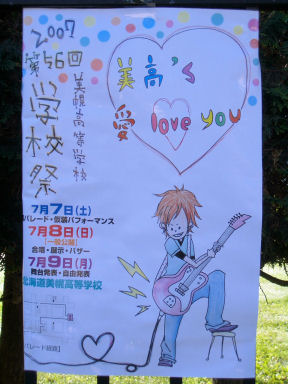 2007
第56回
学校祭
美幌高等学校
美高's
愛 love you
7月7日(土)
パレード・仮装パフォーマンス
7月8日(日)
【一般公開】
合唱・展示・バザー
7月9日(月)
舞台発表・自由発表
北海道美幌高等学校
パレード経路